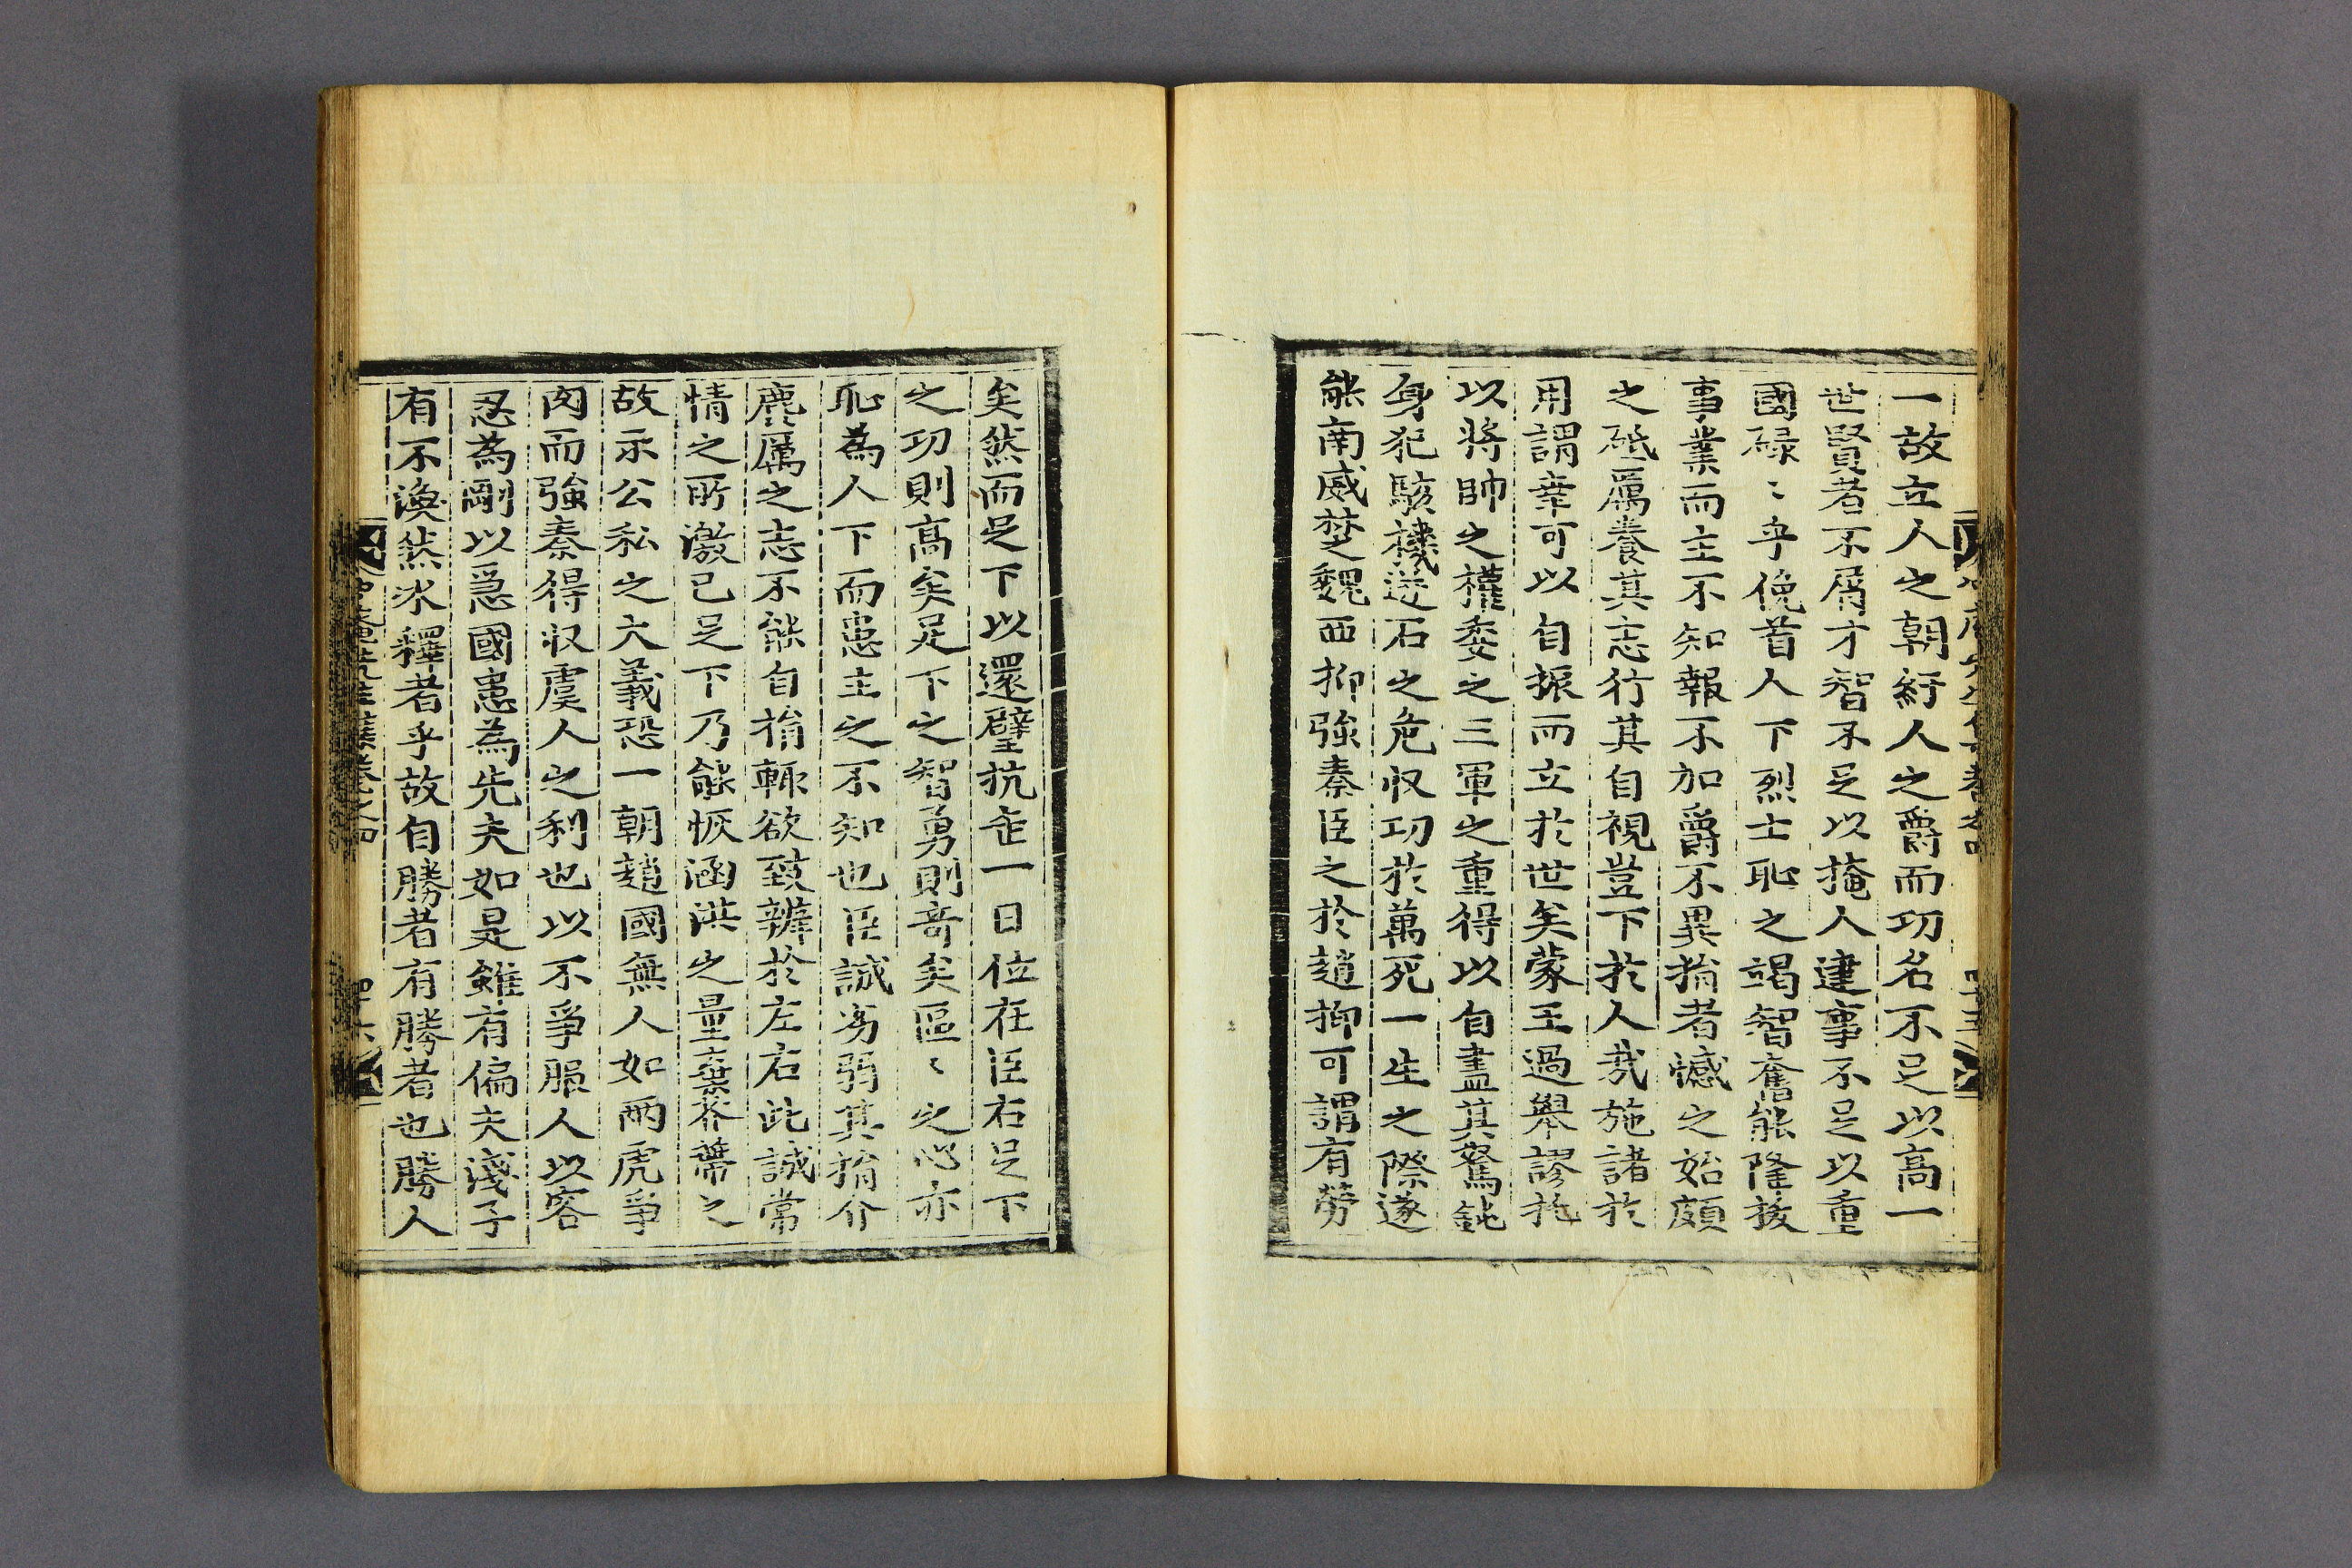 一故立人之朝紆人之爵而功名不足以高一
世賢者不屑才智不足以掩人建事不足以重
國碌〻乎俛首人下烈士恥之竭智奮能隆拔
事業而主不知報不加爵不異狷者憾之始頗
之砥厲養其志行其自視豈下於人哉施諸於
用謂幸可以自振而立於世矣蒙王過舉謬托
以將帥之權委之三軍之重得以自盡其駑鈍
身犯駭機逆石之危収功於萬死一生之際遂
能南威楚魏西抑強秦臣之於趙抑可謂有勞
矣然而足下以還璧抗缶一日位在臣右足下
之功則高矣足下之智勇則奇矣區〻之心亦
恥為人下而患主之不知也臣誠劣弱其狷介
麁厲之志不能自揹輒欲致辨於左右此誠常
情之所激已足下乃能恢涵洪之量棄芥蔕之
故示公私之大義恐一朝趙國無人如兩虎爭
肉而強秦得収虞人之利也以不爭服人以容
忍為剛以急國患為先夫如是雖有偏夫淺子
有不渙然氷釋者乎故自勝者有勝者也勝人